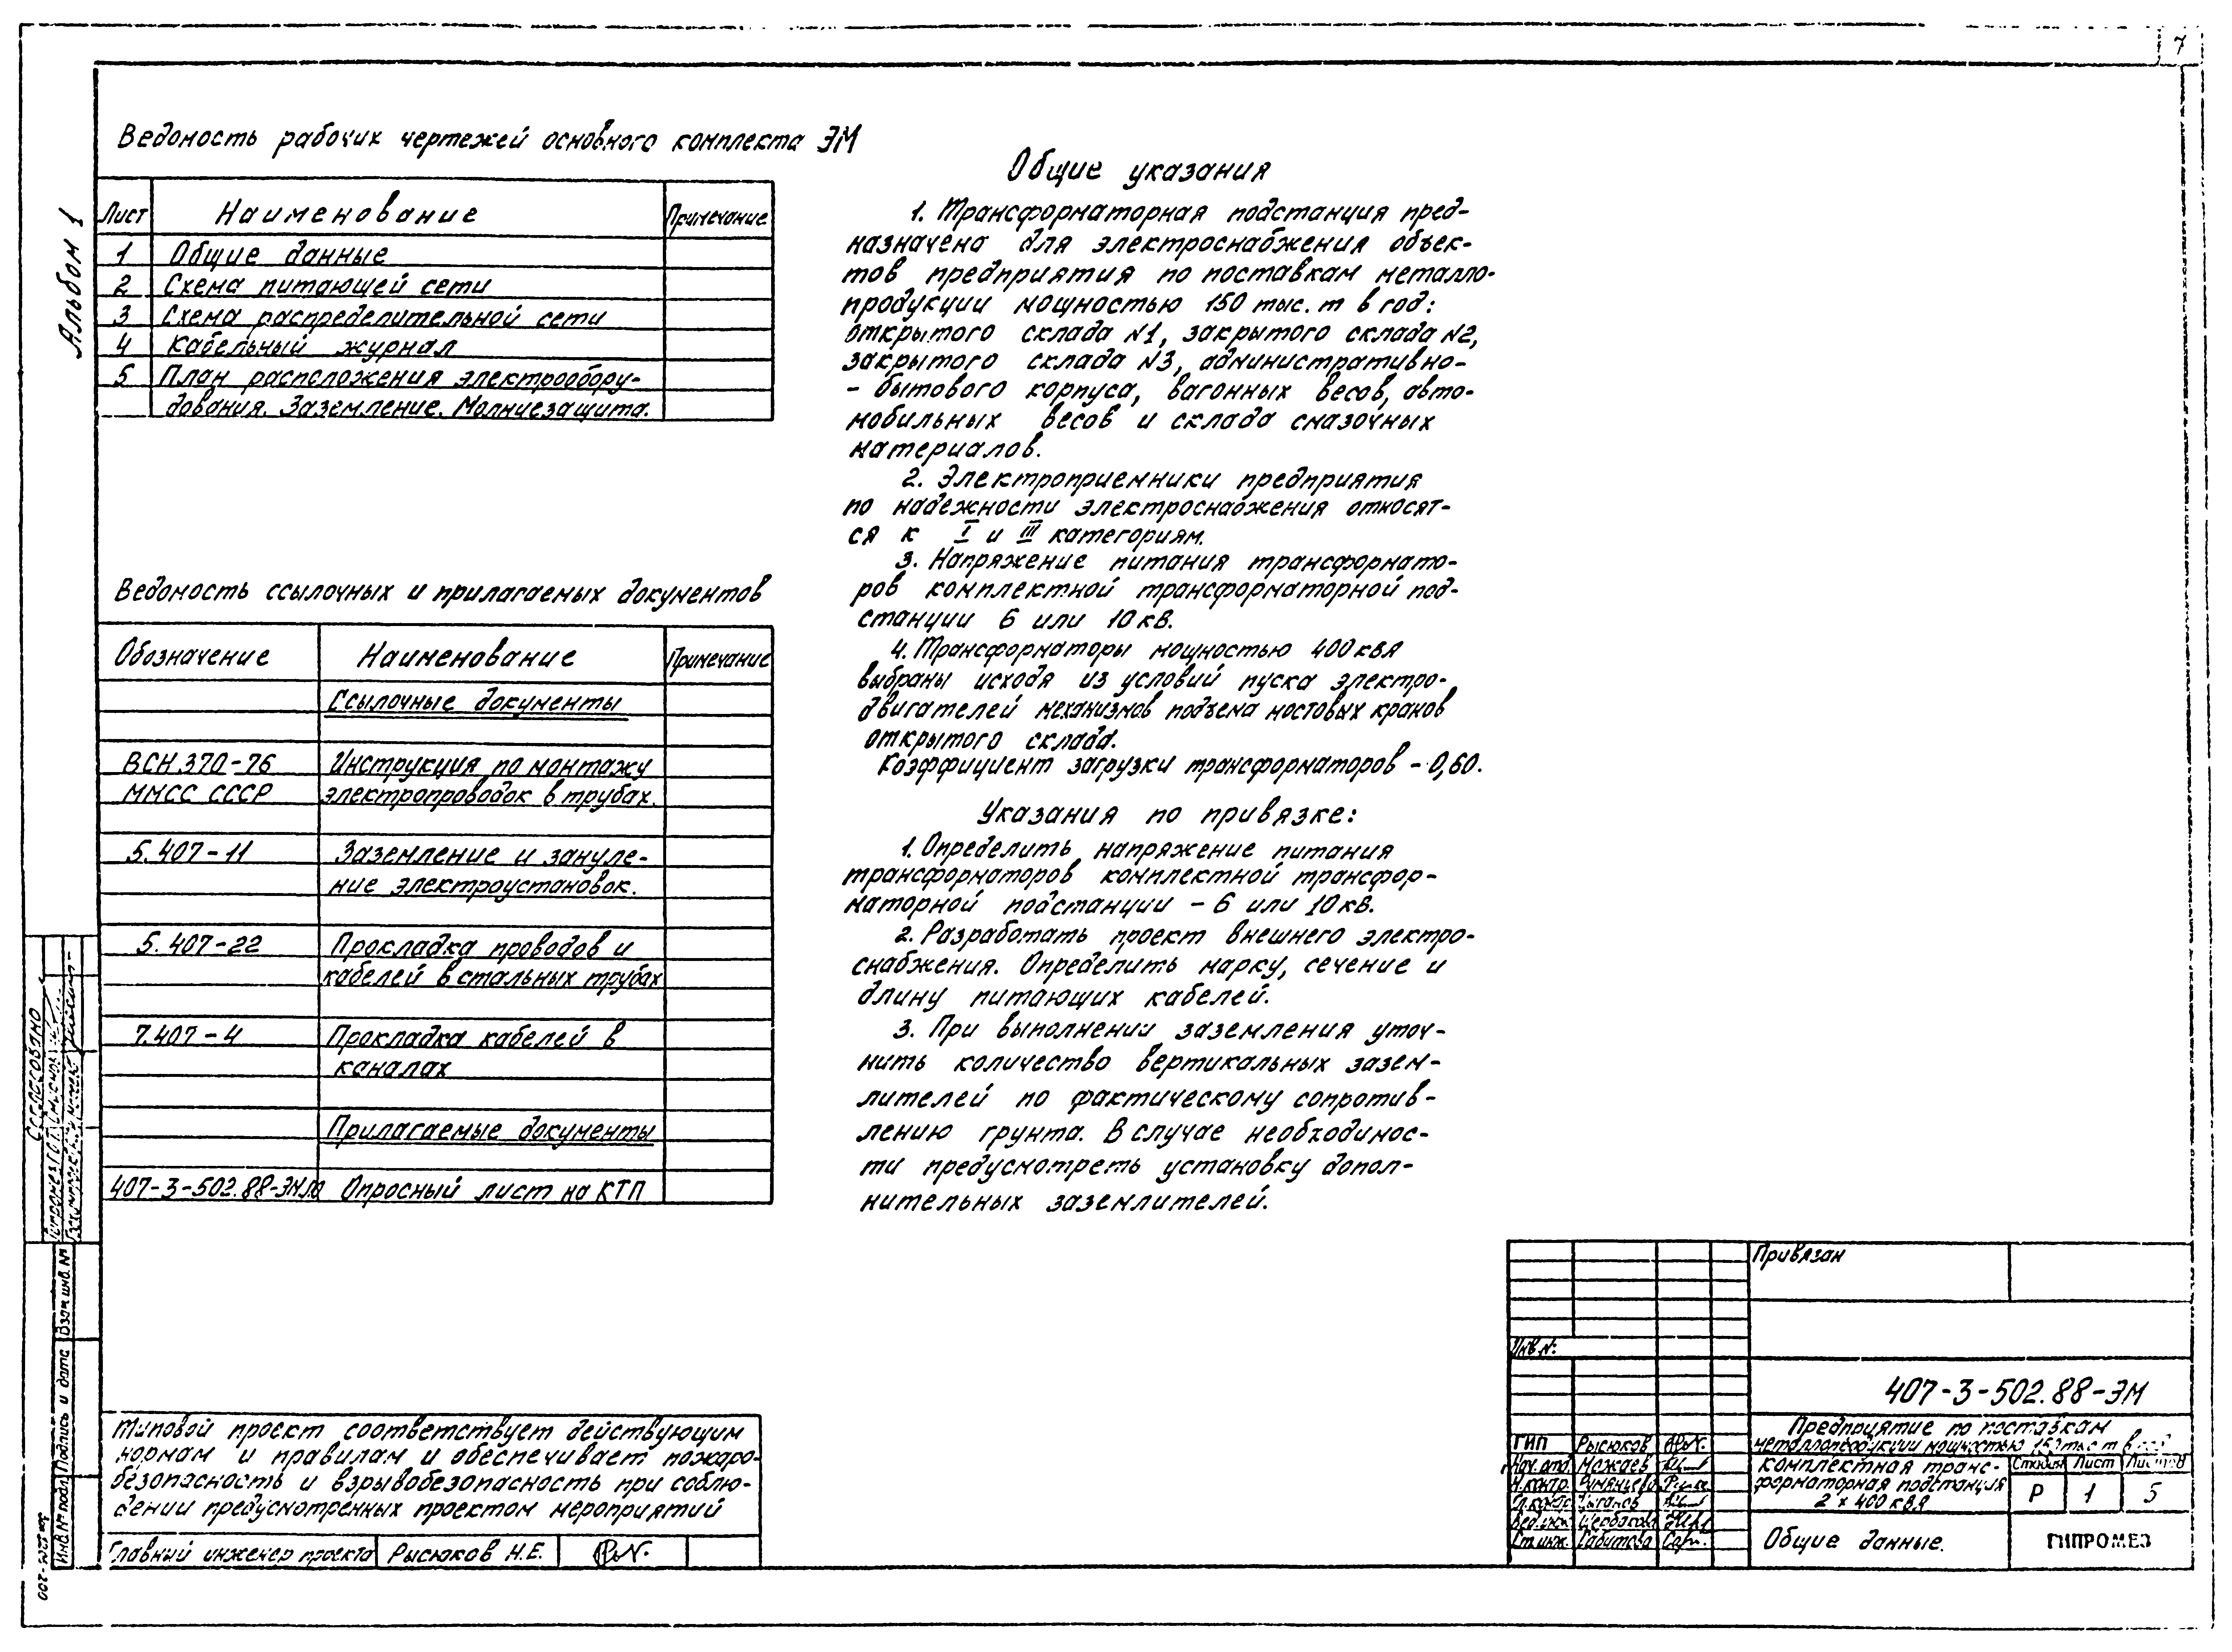 7
Альбом 1
Ведомость рабочих чертежей основного комплекта ЭМ
Лист Наименование Примечание
1 Общие данные
2 Схема питающей сети
3 Схема распределительной сети
4 Кабельный журнал
5 План расположения электрообору-
дования. Заземление. Молниезащита.
Ведомость ссылочных и прилагаемых документов
Обозначение Наименование Примечание
Ссылочные документы
ВСН 370-76 Инструкция по монтажу
ММСС СССР электропроводок в трубах.
5.407-11 Заземление и зануле-
ние электроустановок.
5.407-22 Прокладка проводов и
кабелей в стальных трубах
7.407-4 Прокладка кабелей в
каналах
Прилагаемые документы
407-3-502.88-ЭМЛО Опросный лист на КТП
Типовой проект соответствует действующим
нормам и правилам и обеспечивает пожаро-
безопасность и взрывобезопасность при соблю-
дении предусмотренных проектом мероприятий
Главный инженер проекта Рысюков Н.Е.
Общие указания
1. Трансформаторная подстанция пред-
назначена для электроснабжения объек-
тов предприятия по поставкам металло-
продукции мощностью 150 тыс. т в год:
открытого склада N1, закрытого склада N2,
закрытого склада N3, административно-
- бытового корпуса, вагонных весов, авто-
мобильных весов и склада смазочных
материалов.
2. Электроприемники предприятия
по надежности электроснабжения относят-
ся к I и III категориям.
3. Напряжение питания трансформато-
ров комплектной трансформаторной под-
станции 6 или 10 кв.
4. Трансформаторы мощностью 400 квя
выбраны исходя из условий пуска электро-
двигателей механизмов подъема мостовых кранов
открытого склада.
Коэффициент загрузки трансформаторов - 0,60.
Указания по привязке:
1. Определить напряжение питания
трансформаторов комплектной трансфор-
маторной подстанции - 6 или 10 кв.
2. Разработать проект внешнего электро-
снабжения. Определить марку, сечение и
длину питающих кабелей.
3. При выполнении заземления уточ-
нить количество вертикальных зазем-
лителей по фактическому сопротив-
лению грунта. В случае необходимос-
ти предусмотреть установку допол-
нительных заземлителей.
Согласовано
Взам инв. №
Подпись и дата
Инв. № подл.
Привязан
Инв. N:
407-3-502.88-ЭМ
Предприятие по поставкам
металлопродукции мощностью 150 тыс т в год
ГИП Рысюков
Нач. отд. Можаев
Н.контр. Румянцева
Гл.констр. Цыганов
Вед.инж. Щербакова
Ст.инж. Сабитова
Комплектная транс-
форматорная подстанция
2 х 400 квя
Стадия Лист Листов
Р 1 5
Общие данные.
ГИПРОМЕЗ